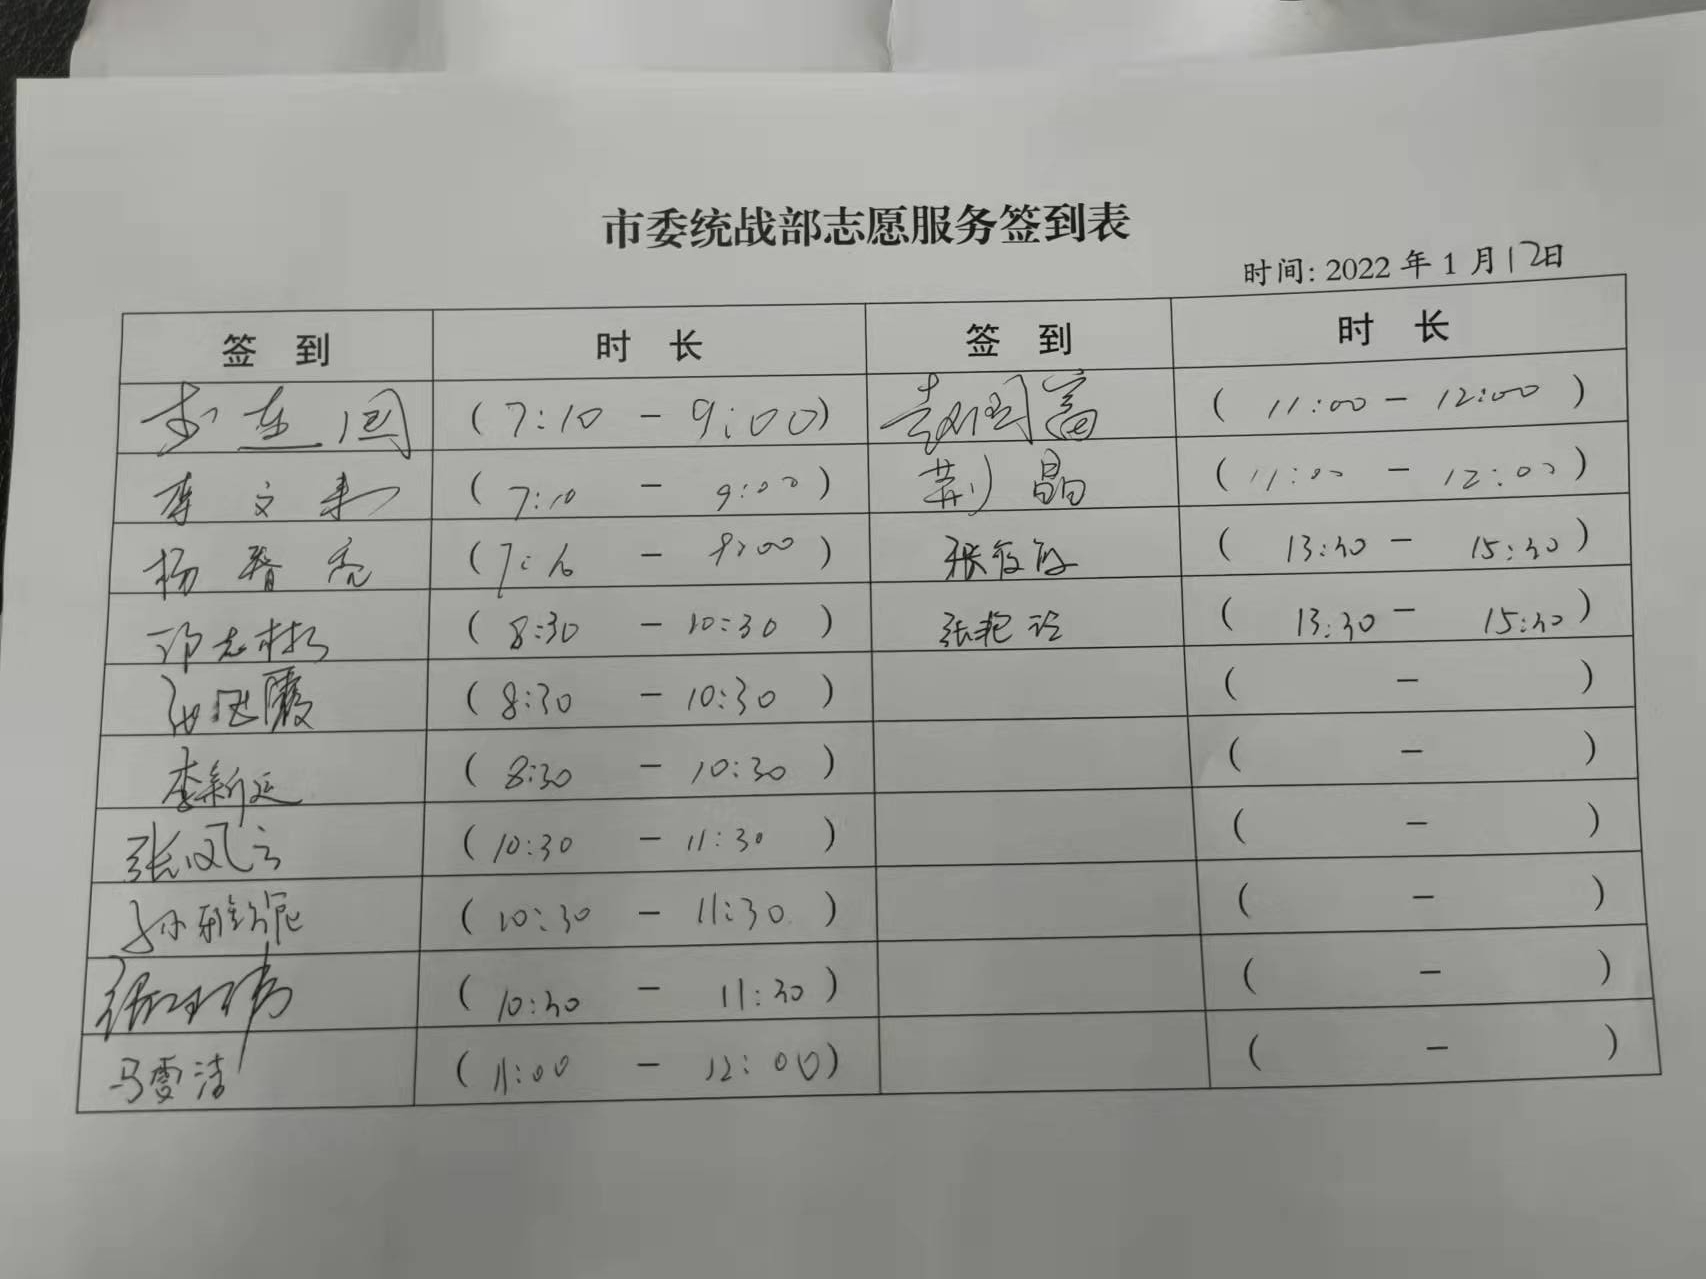 市委统战部志愿服务签到表
时间: 2022 年 1 月 12日
签 到 时 长 签 到 时 长
李连国 (7:10 - 9:00) 国富 (11:00 - 12:00)
李文 (7:10 - 9:00) 荆晶 (11:00 - 12:00)
杨晋亮 (7: - 9:00) 张 (13:30 - 15:30)
邓志彬 (8:30 - 10:30) 张艳玲 (13:30 - 15:30)
霞 (8:30 - 10:30) ( - )
李新延 (8:30 - 10:30) ( - )
张凤云 (10:30 - 11:30) ( - )
孙雅 (10:30 - 11:30) ( - )
张伟 (10:30 - 11:30) ( - )
马雪洁 (11:00 - 12:00) ( - )